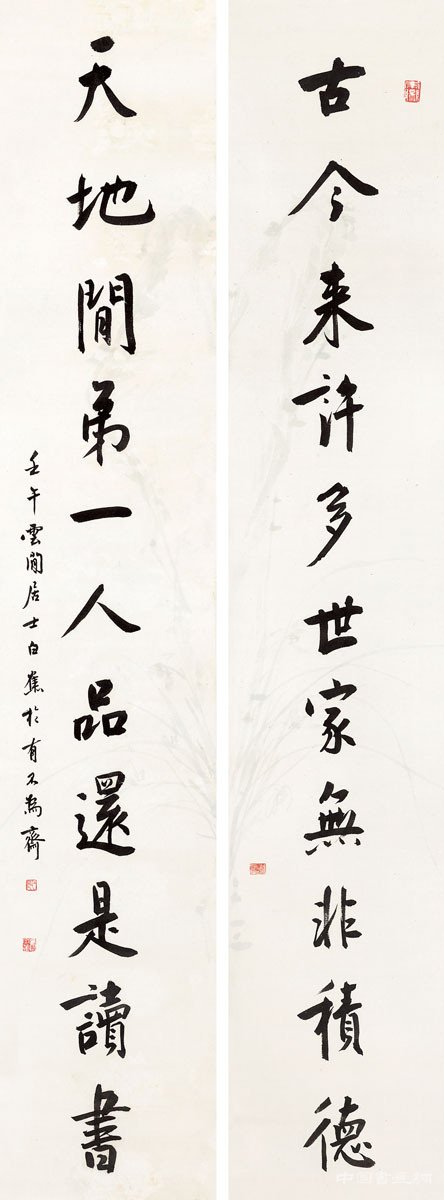 古今来許多世家無非積德
天地間弟一人品還是讀書
壬午雲間居士白蕉於有不為齋
中国书画网